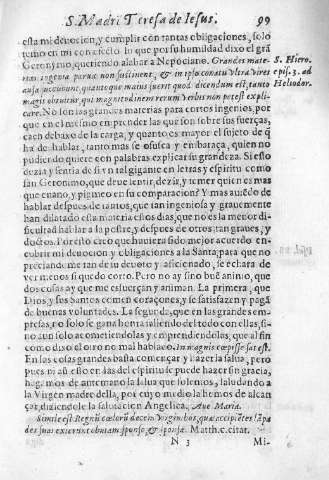 S. Madri Teresa de Iesus. 99
esta mi deuocion, y cumplir con tantas obligaciones, solo
temo en mi con afecto lo que por su humildad dixo el grã
Geronymo, queriendo alabar a Nepociano. Grandes mate-
rias ingenia paruae non sustinent, & in ipso conatu vltra vires
ausa succumbunt, quantoque maius fuerit quod dicendum est, tanto
magis obruitur, qui magnitudinem rerum verbis non potest expli-
care. No son las grandes materias para cortos ingenios, por
que en el mesmo emprender las que son sobre sus fuerças,
caen debaxo de la carga, y quanto es mayor el sujeto de q̃
ha de hablar, tanto mas se ofusca y embaraça, quien no
pudiendo quiere con palabras explicar su grandeza. Si esto
dezia y sentia de si vn tal gigante en letras y espiritu como
san Geronimo, que deue sentir, dezir, y temer quien es mas
que enano, y pigmeo en su comparacion? Y mas auiẽdo de
hablar despues de tantos, que tan ingeniosa y grauemente
han dilatado esta materia estos dias, que no es la menor di-
ficultad hablar a la postre, y despues de otros tan graues, y
doctos. Por esto creo que huuiera sido mejor acuerdo en-
cubrir mi deuocion y obligaciones a la Santa, para que no
preciandome tan de su deuoto y aficionado, se echara de
ver menos si quedo corto. Pero no ay sino buẽ animo, que
dos cosas ay que me esfuerçan y animan. La primera, que
Dios, y sus Santos comen coraçones, y se satisfazen y pagã
de buenas voluntades. La segunda, que en las grandes em-
presas, no solo se gana honra saliendo del todo con ellas, si-
no aun solo acometiendolas y emprendiendolas, que al fin
como dixo el otro no mal hablado. In magnis cœpisse sat est.
En las cosas grandes basta començar y hazer la salua, pero
pues ni aũ esto en das del espiritu se puede hazer sin gracia,
hagamos de antemano la salua que solemos, saludando a
la Virgen madre della, por cuyo medio la hemos de alcan-
çar, diziendole la salutacion Angelica. Aue Maria.
Simile est Regnũ cœlorũ decem Virginibus, quæ accipiẽtes lãpa
des suas exierunt obuiam sponso, & sponsæ. Matth. c. citat.
N 3 Mi-
S. Hiero.
epis. 3. ad
Heliodor.